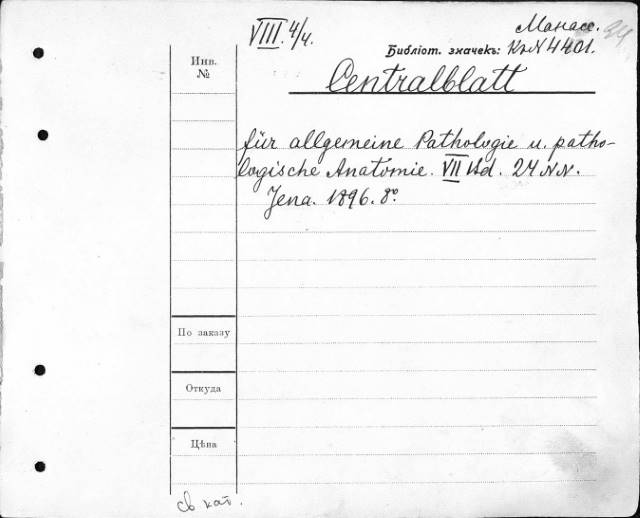 VIII. 4/4.
Манасс.
Библіот. значекъ: К.№ 4401.
Инв.
№
Centralblatt
für allgemeine Pathologie u. patho-
logische Anatomie. VII Bd. 24 NN.
Jena. 1896. 8º.
По заказу
Откуда
Цѣна
св кат.